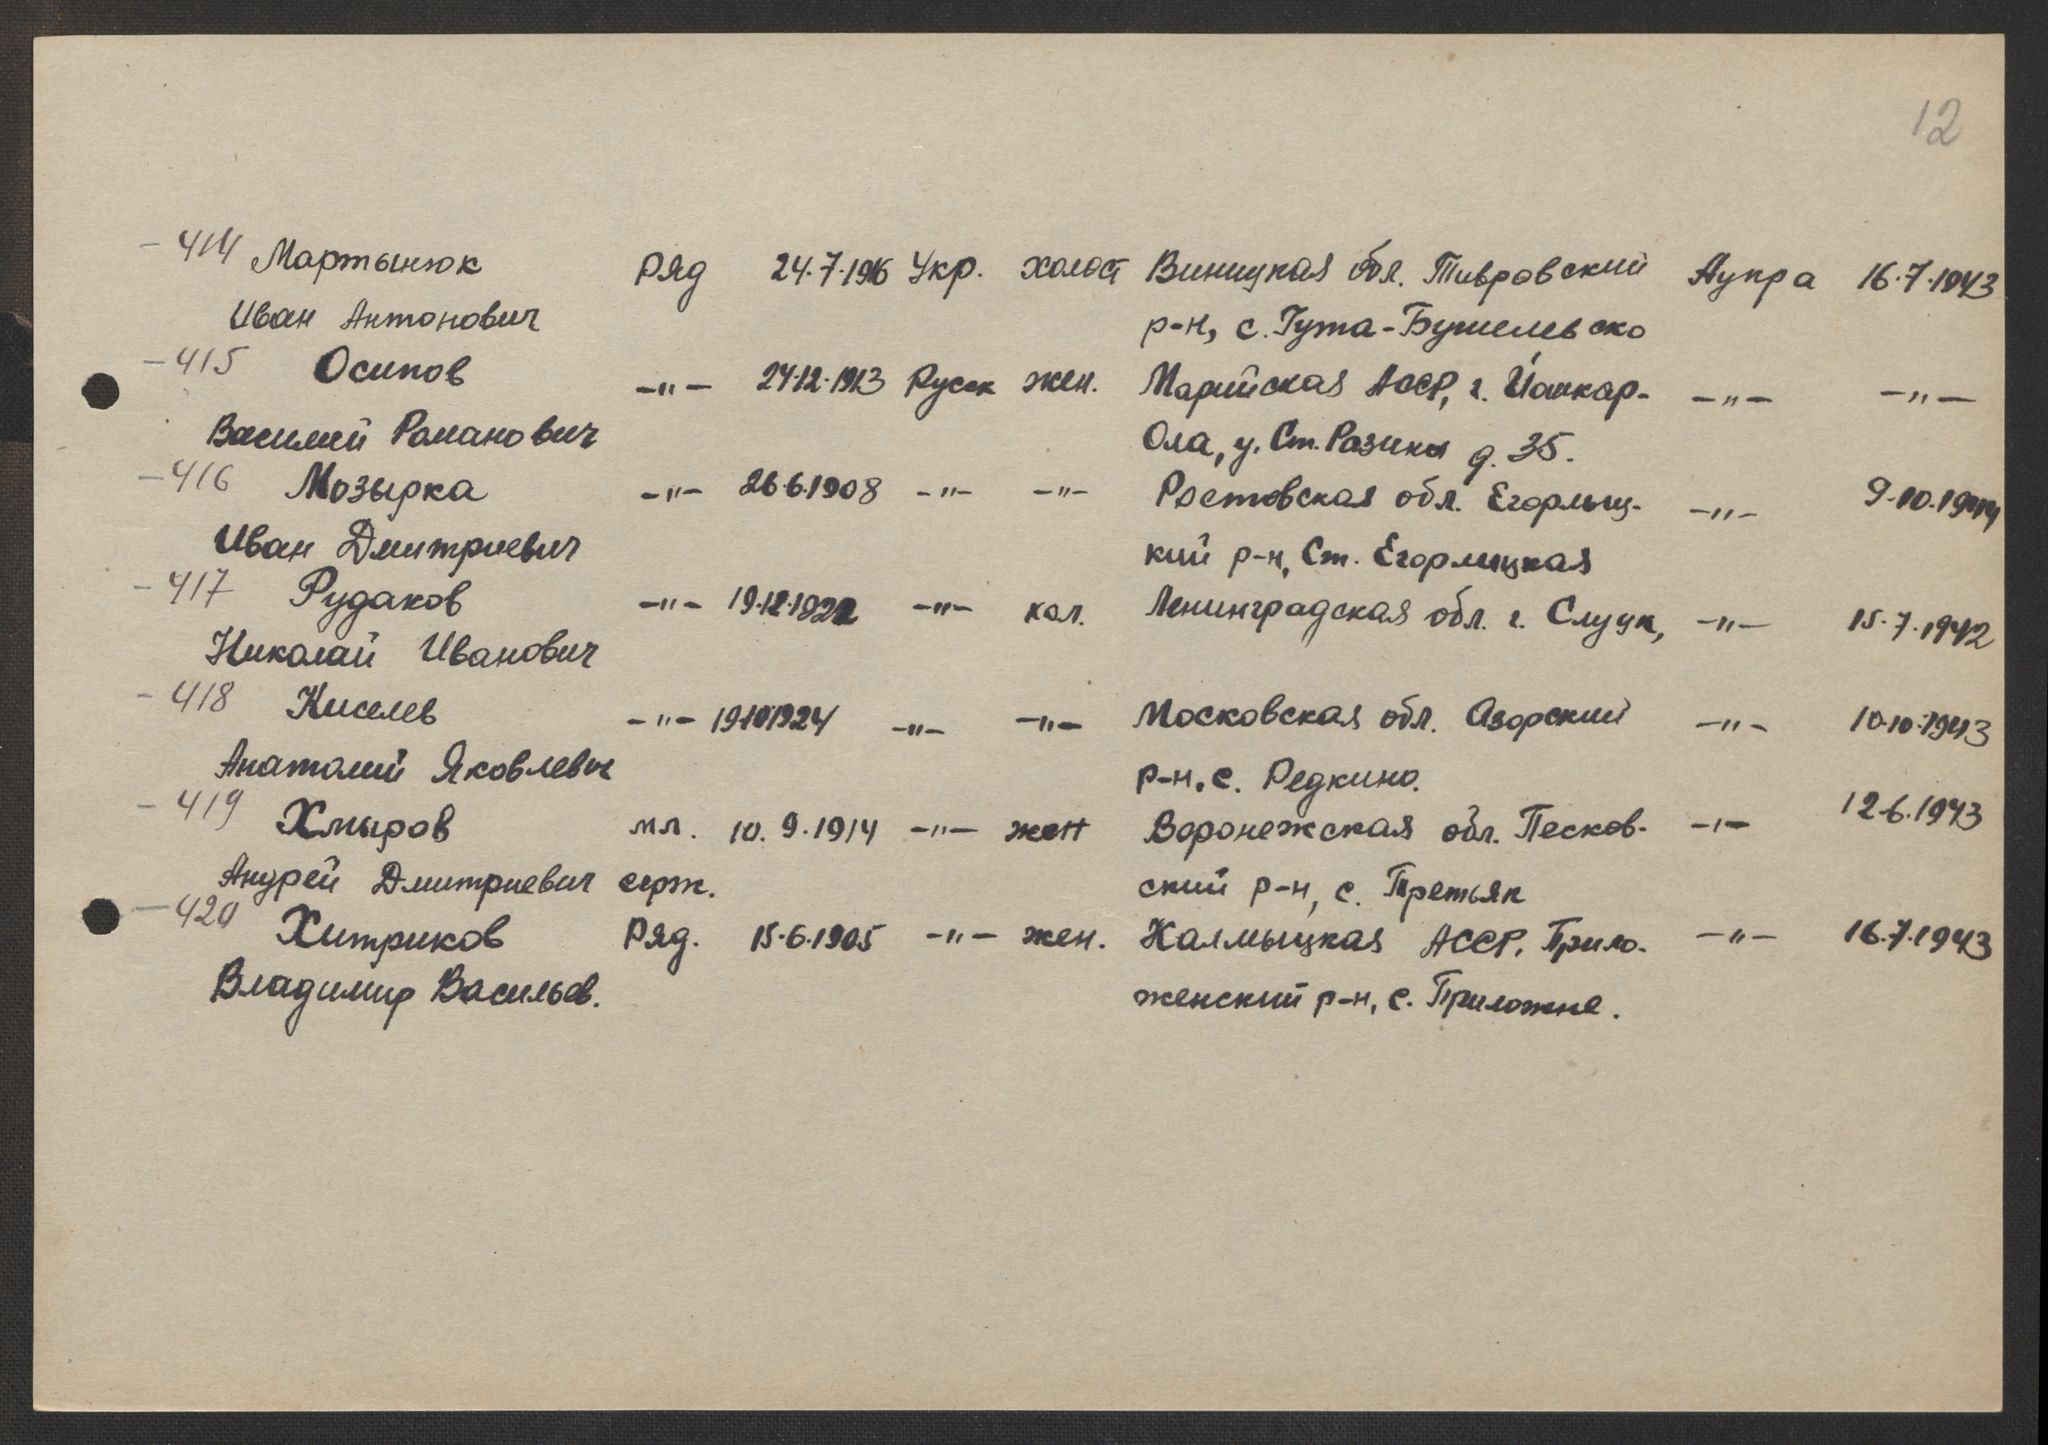 12
- 414 Мартынюк Ряд 24.7.1916 Укр. холост Виницкая обл. Тивровский Аупра 16.7.1943
Иван Антонович р-н, с. Гута-Бушелевско
- 415 Осипов -"- 24.12.1913 Русск жен. Марийская АССР, г. Йошкар- -"- -"-
Василий Романович Ола, у. Ст. Разины д. 35.
- 416 Мозырка -"- 26.6.1908 -"- -"- Ростовская обл. Егорлыц- -"- 9.10.1944
Иван Дмитриевич кий р-н, Ст. Егорлицкая
- 417 Рудаков -"- 19.12.1922 -"- хол. Ленинградская обл. г. Слуцк, -"- 15.7.1942
Николай Иванович
- 418 Киселев -"- 19.10.1924 -"- -"- Московская обл. Озорский -"- 10.10.1943
Анатолий Яковлевич р-н, с. Редкино.
- 419 Хмыров мл. 10.9.1914 -"- жен Воронежская обл. Песков- -"- 12.6.1943
Андрей Дмитриевич серж. ский р-н, с. Третьяк
- 420 Хитриков Ряд. 15.6.1905 -"- жен. Калмыцкая АССР. Прило- -"- 16.7.1943
Владимир Васильев. женский р-н, с. Приложне.